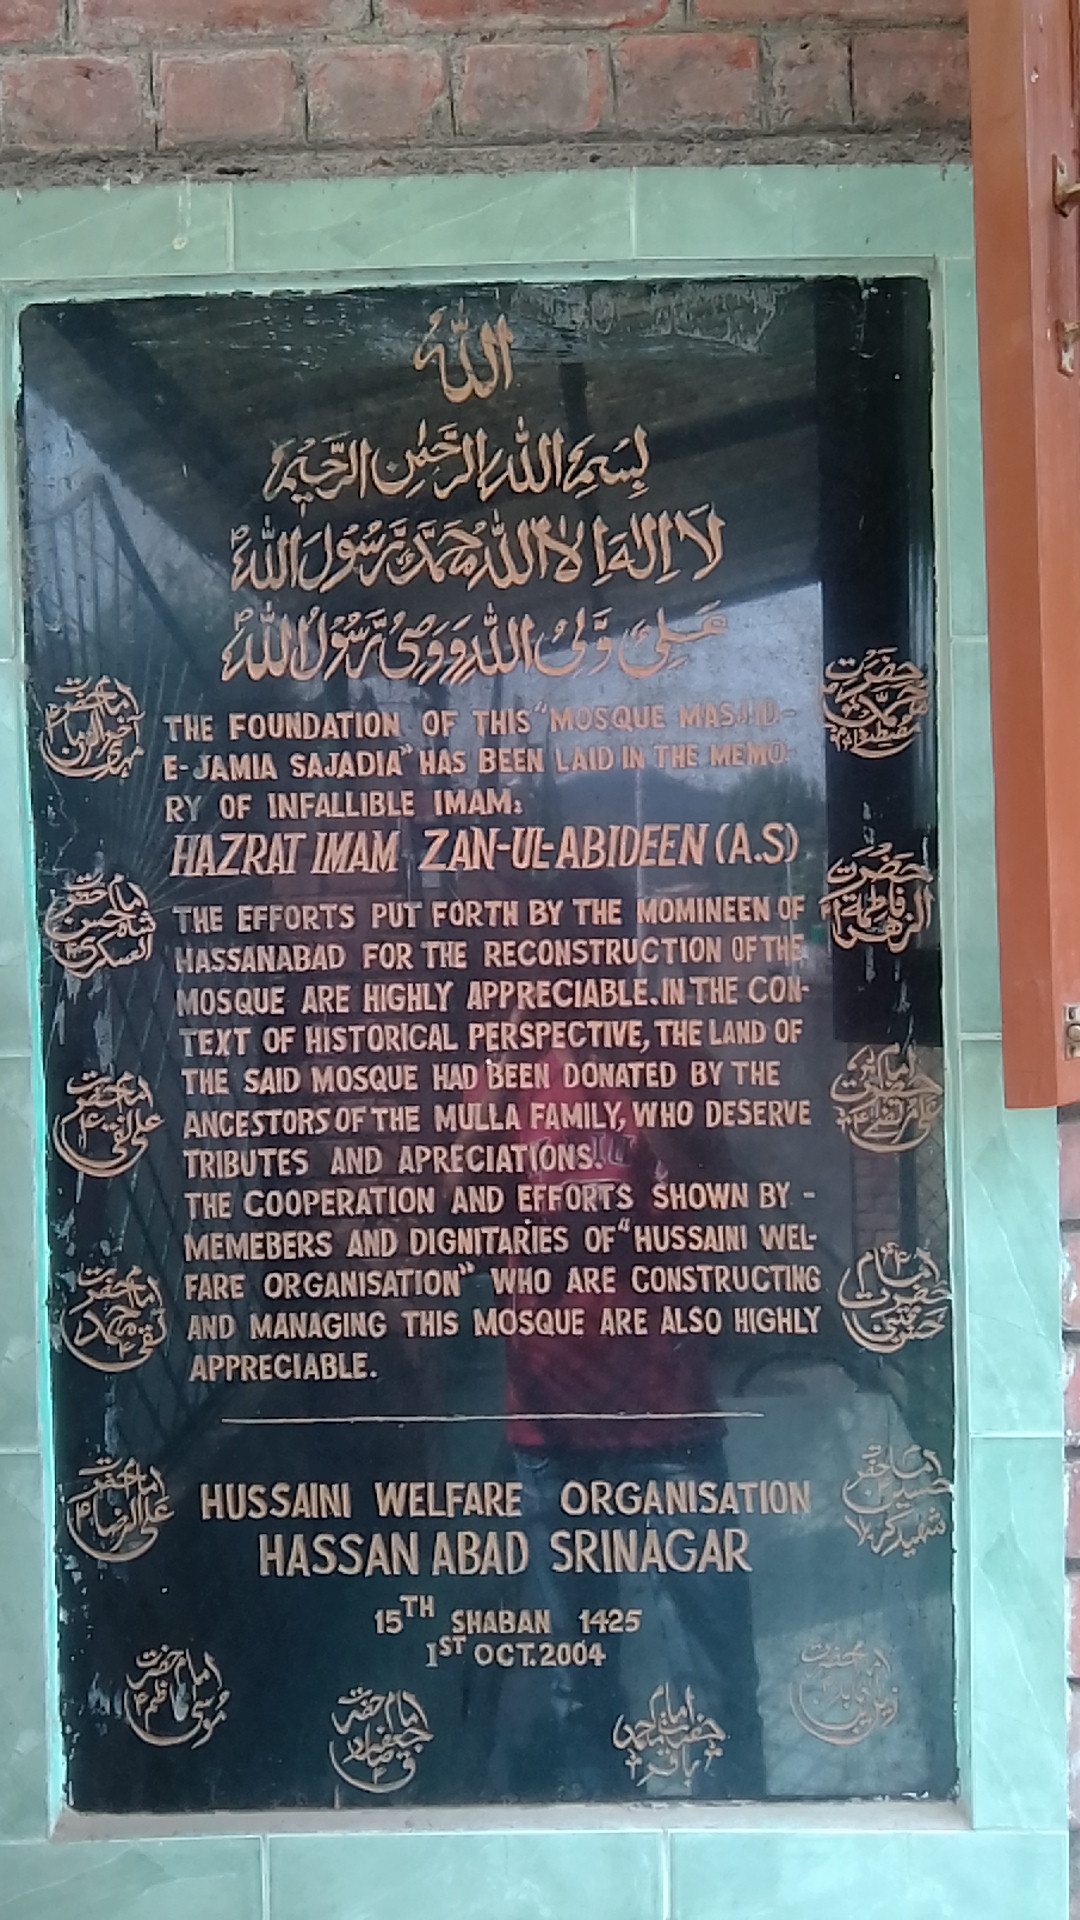 الله
بِسْمِ اللهِ الرَّحْمٰنِ الرَّحِيْمِ
لَا اِلٰهَ اِلَّا اللهُ مُحَمَّدٌ رَّسُوْلُ اللهِ
عَلِيٌّ وَّلِيُّ اللهِ وَوَصِيُّ رَّسُوْلُ اللهِ
THE FOUNDATION OF THIS "MOSQUE MASJID-
E-JAMIA SAJADIA" HAS BEEN LAID IN THE MEMO-
RY OF INFALLIBLE IMAM:
HAZRAT IMAM ZAN-UL-ABIDEEN (A.S)
THE EFFORTS PUT FORTH BY THE MOMINEEN OF
HASSANABAD FOR THE RECONSTRUCTION OF THE
MOSQUE ARE HIGHLY APPRECIABLE. IN THE CON-
TEXT OF HISTORICAL PERSPECTIVE, THE LAND OF
THE SAID MOSQUE HAD BEEN DONATED BY THE
ANCESTORS OF THE MULLA FAMILY, WHO DESERVE
TRIBUTES AND APRECIATIONS.
THE COOPERATION AND EFFORTS SHOWN BY -
MEMEBERS AND DIGNITARIES OF "HUSSAINI WEL-
FARE ORGANISATION" WHO ARE CONSTRUCTING
AND MANAGING THIS MOSQUE ARE ALSO HIGHLY
APPRECIABLE.
HUSSAINI WELFARE ORGANISATION
HASSAN ABAD SRINAGAR
15TH SHABAN 1425
1ST OCT. 2004
حضرت محمد مصطفےٰ
حضرت فاطمة الزهرا
امام حضرت علی نقی
امام حضرت محمد تقی
امام حضرت علی الرضا
امام حضرت حسین شهید کربلا
امام حضرت موسی کاظم
امام حضرت جعفر صادق
امام حضرت محمد باقر